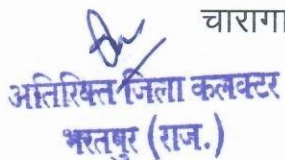 चारागा
अतिरिक्त जिला कलक्टर
भरतपुर (राज.)